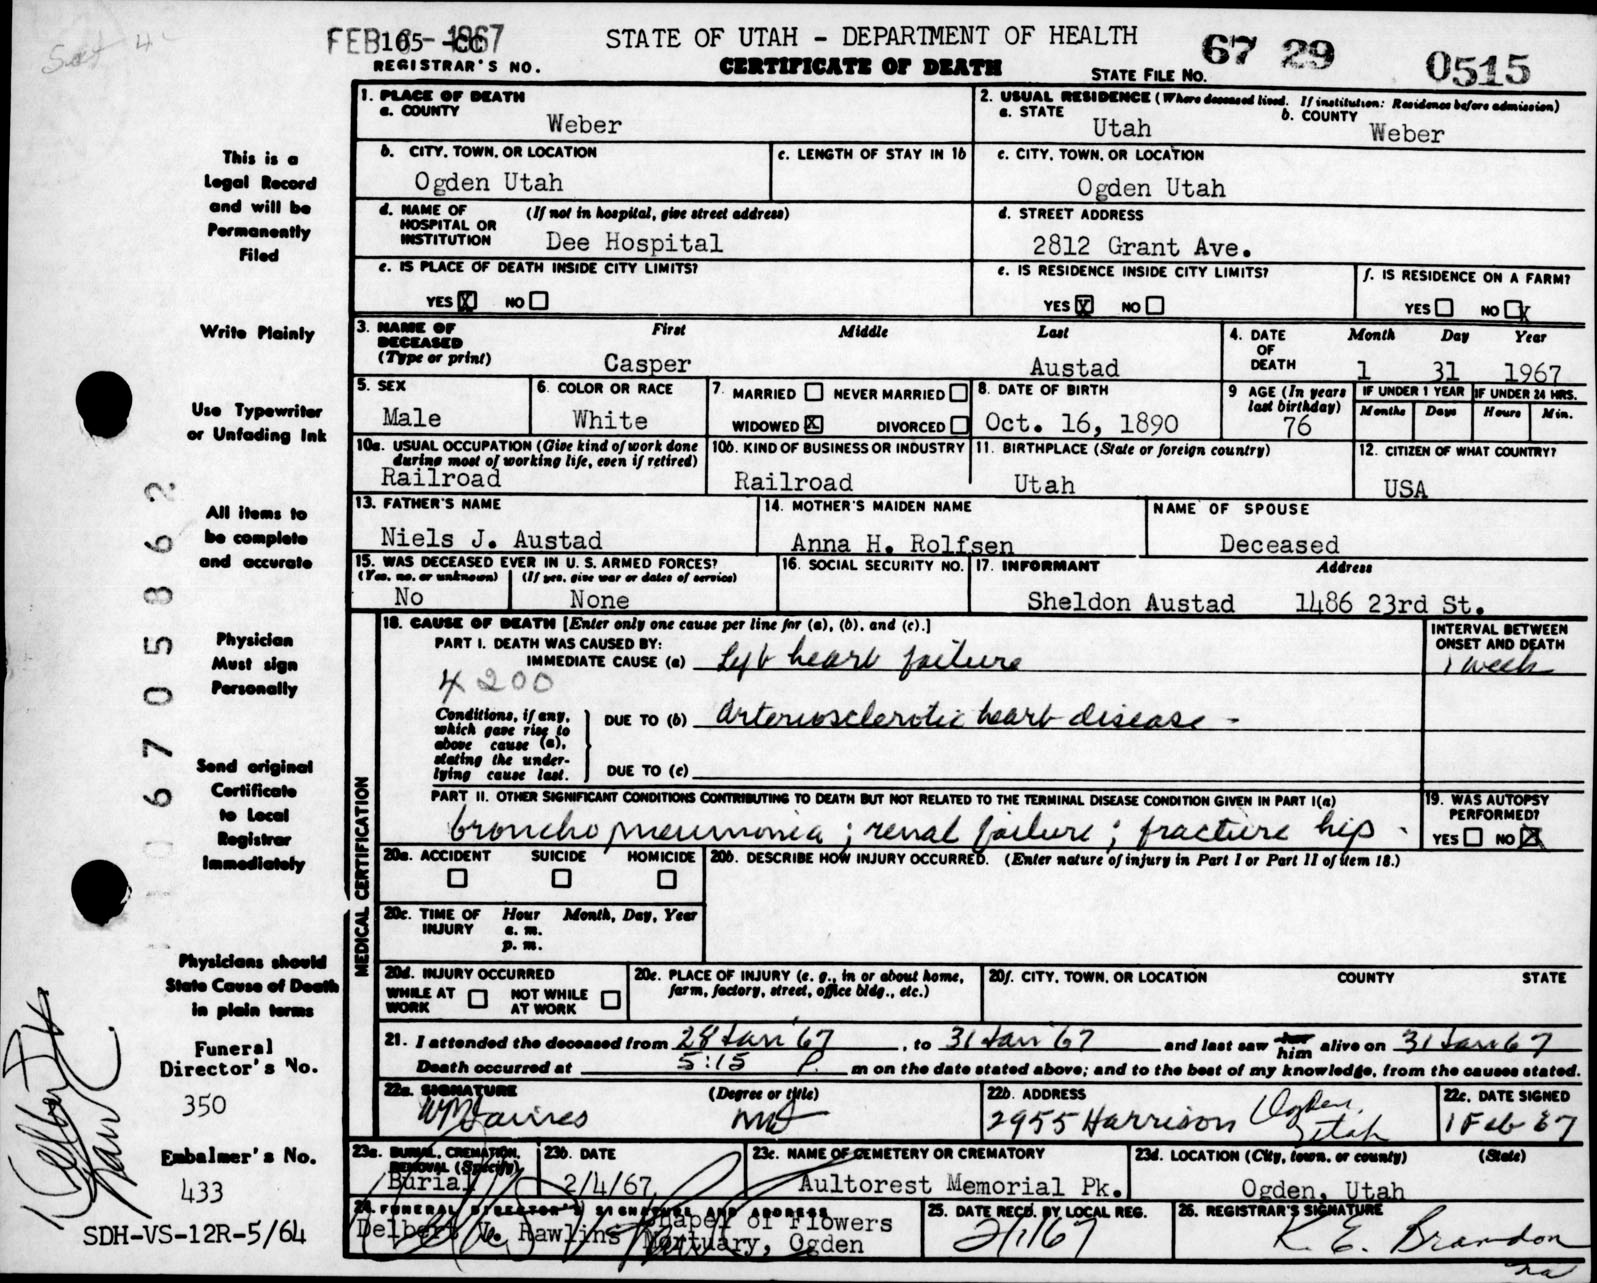 Sat 4
FEB 6 - 1967
165 - CC
REGISTRAR'S NO.
STATE OF UTAH - DEPARTMENT OF HEALTH
CERTIFICATE OF DEATH
STATE FILE NO. 67 29 0515
This is a
Legal Record
and will be
Permanently
Filed
Write Plainly
Use Typewriter
or Unfading Ink
All items to
be complete
and accurate
Physician
Must sign
Personally
Send original
Certificate
to Local
Registrar
Immediately
Physicians should
State Cause of Death
in plain terms
Funeral
Director's No.
350
Embalmer's No.
433
SDH-VS-12R-5/64
67058 62
1. PLACE OF DEATH
a. COUNTY
Weber
2. USUAL RESIDENCE (Where deceased lived. If institution: Residence before admission)
a. STATE b. COUNTY
Utah Weber
b. CITY, TOWN, OR LOCATION
Ogden Utah
c. LENGTH OF STAY IN 1b
c. CITY, TOWN, OR LOCATION
Ogden Utah
d. NAME OF (If not in hospital, give street address)
HOSPITAL OR
INSTITUTION Dee Hospital
d. STREET ADDRESS
2812 Grant Ave.
e. IS PLACE OF DEATH INSIDE CITY LIMITS?
YES X NO
e. IS RESIDENCE INSIDE CITY LIMITS?
YES X NO
f. IS RESIDENCE ON A FARM?
YES NO X
3. NAME OF First Middle Last
DECEASED
(Type or print) Casper Austad
4. DATE Month Day Year
OF
DEATH 1 31 1967
5. SEX
Male
6. COLOR OR RACE
White
7. MARRIED NEVER MARRIED
WIDOWED X DIVORCED
8. DATE OF BIRTH
Oct. 16, 1890
9 AGE (In years
last birthday)
76
IF UNDER 1 YEAR IF UNDER 24 HRS.
Months Days Hours Min.
10a. USUAL OCCUPATION (Give kind of work done
during most of working life, even if retired)
Railroad
10b. KIND OF BUSINESS OR INDUSTRY
Railroad
11. BIRTHPLACE (State or foreign country)
Utah
12. CITIZEN OF WHAT COUNTRY?
USA
13. FATHER'S NAME
Niels J. Austad
14. MOTHER'S MAIDEN NAME
Anna H. Rolfsen
NAME OF SPOUSE
Deceased
15. WAS DECEASED EVER IN U. S. ARMED FORCES?
(Yes, no, or unknown) (If yes, give war or dates of service)
No None
16. SOCIAL SECURITY NO.
17. INFORMANT Address
Sheldon Austad 1486 23rd St.
MEDICAL CERTIFICATION
18. CAUSE OF DEATH [Enter only one cause per line for (a), (b), and (c).]
PART I. DEATH WAS CAUSED BY:
IMMEDIATE CAUSE (a) Left heart failure
4200
Conditions, if any,
which gave rise to
above cause (a),
stating the under-
lying cause last.
DUE TO (b) Arteriosclerotic heart disease -
DUE TO (c)
INTERVAL BETWEEN
ONSET AND DEATH
1 week
PART II. OTHER SIGNIFICANT CONDITIONS CONTRIBUTING TO DEATH BUT NOT RELATED TO THE TERMINAL DISEASE CONDITION GIVEN IN PART I(a)
bronchopneumonia ; renal failure ; fracture hip .
19. WAS AUTOPSY
PERFORMED?
YES NO X
20a. ACCIDENT SUICIDE HOMICIDE
20b. DESCRIBE HOW INJURY OCCURRED. (Enter nature of injury in Part I or Part II of item 18.)
20c. TIME OF Hour Month, Day, Year
INJURY a. m.
p. m.
20d. INJURY OCCURRED
WHILE AT NOT WHILE
WORK AT WORK
20e. PLACE OF INJURY (e. g., in or about home,
farm, factory, street, office bldg., etc.)
20f. CITY, TOWN, OR LOCATION COUNTY STATE
21. I attended the deceased from 28 Jan '67, to 31 Jan '67 and last saw her him alive on 31 Jan 67
Death occurred at 5:15 P. m on the date stated above; and to the best of my knowledge, from the causes stated.
22a. SIGNATURE (Degree or title)
MD
22b. ADDRESS
2955 Harrison Ogden, Utah
22c. DATE SIGNED
1 Feb 67
23a. BURIAL, CREMATION,
REMOVAL (Specify)
Burial
23b. DATE
2/4/67
23c. NAME OF CEMETERY OR CREMATORY
Aultorest Memorial Pk.
23d. LOCATION (City, town, or county) (State)
Ogden, Utah
24. FUNERAL DIRECTOR'S SIGNATURE AND ADDRESS
Delbert V. Rawlins Chapel of Flowers
Mortuary, Ogden
25. DATE RECD. BY LOCAL REG.
2/1/67
26. REGISTRAR'S SIGNATURE
K. E. Brandon